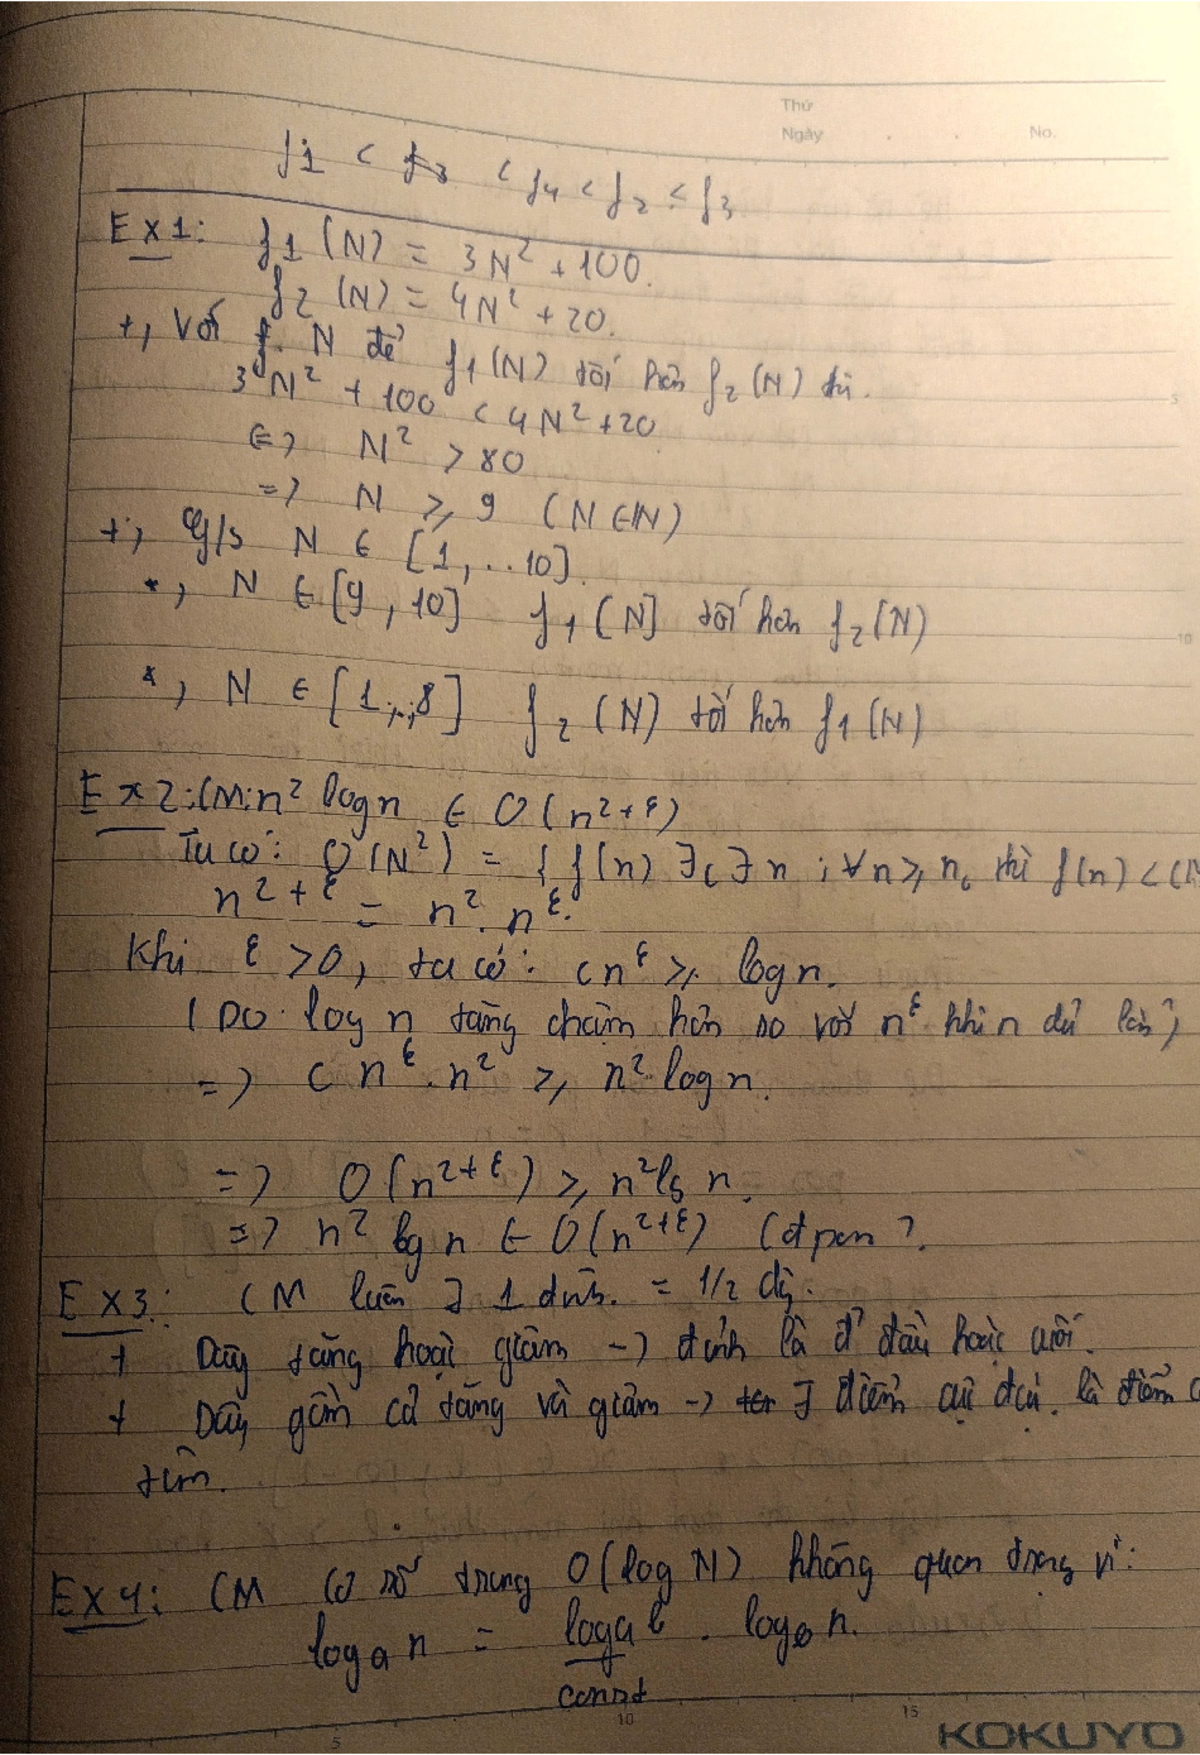 Thứ
Ngày . . No.
f1 < f3 < f4 < f2 < f3
Ex1: f1 (N) = 3N² + 100.
f2 (N) = 4N² + 20.
+, Với N để f1(N) tốt hơn f2(N) thì.
3N² + 100 < 4N² + 20
<=> N² > 80
=> N ≥ 9 (N ∈ ℕ)
+, G/s N ∈ [1,..10].
*, N ∈ [9, 10] f1(N] tốt hơn f2(N)
*, N ∈ [1,..,8] f2 (N) tốt hơn f1(N)
Ex2: CM: n² log n ∈ O(n²⁺ᵋ)
Ta có: O(N²) = { f(n) ∃c ∃n ; ∀n ≥ n₀ thì f(n) <
n²⁺ᵋ = n² . nᵋ.
Khi ε > 0, ta có: cnᵋ ≥ log n.
(Do log n tăng chậm hơn so với nᵋ khi n đủ lớn)
=> c nᵋ . n² ≥ n² log n.
=> O(n²⁺ᵋ) ≥ n² lg n.
=> n² log n ∈ O(n²⁺ᵋ) (đpcm).
Ex3: CM luôn ∃ 1 đỉnh. = 1/2 dãy.
+ Dãy tăng hoặc giảm -> đỉnh là ở đầu hoặc cuối.
+ Dãy gồm cả tăng và giảm -> ∃ điểm cực đại. là điểm c
tìm.
Ex4: CM cơ số trong O(log N) không quan trọng vì:
logₐ n = logₐ b . log_b n.
const
5 10 15
KOKUYO